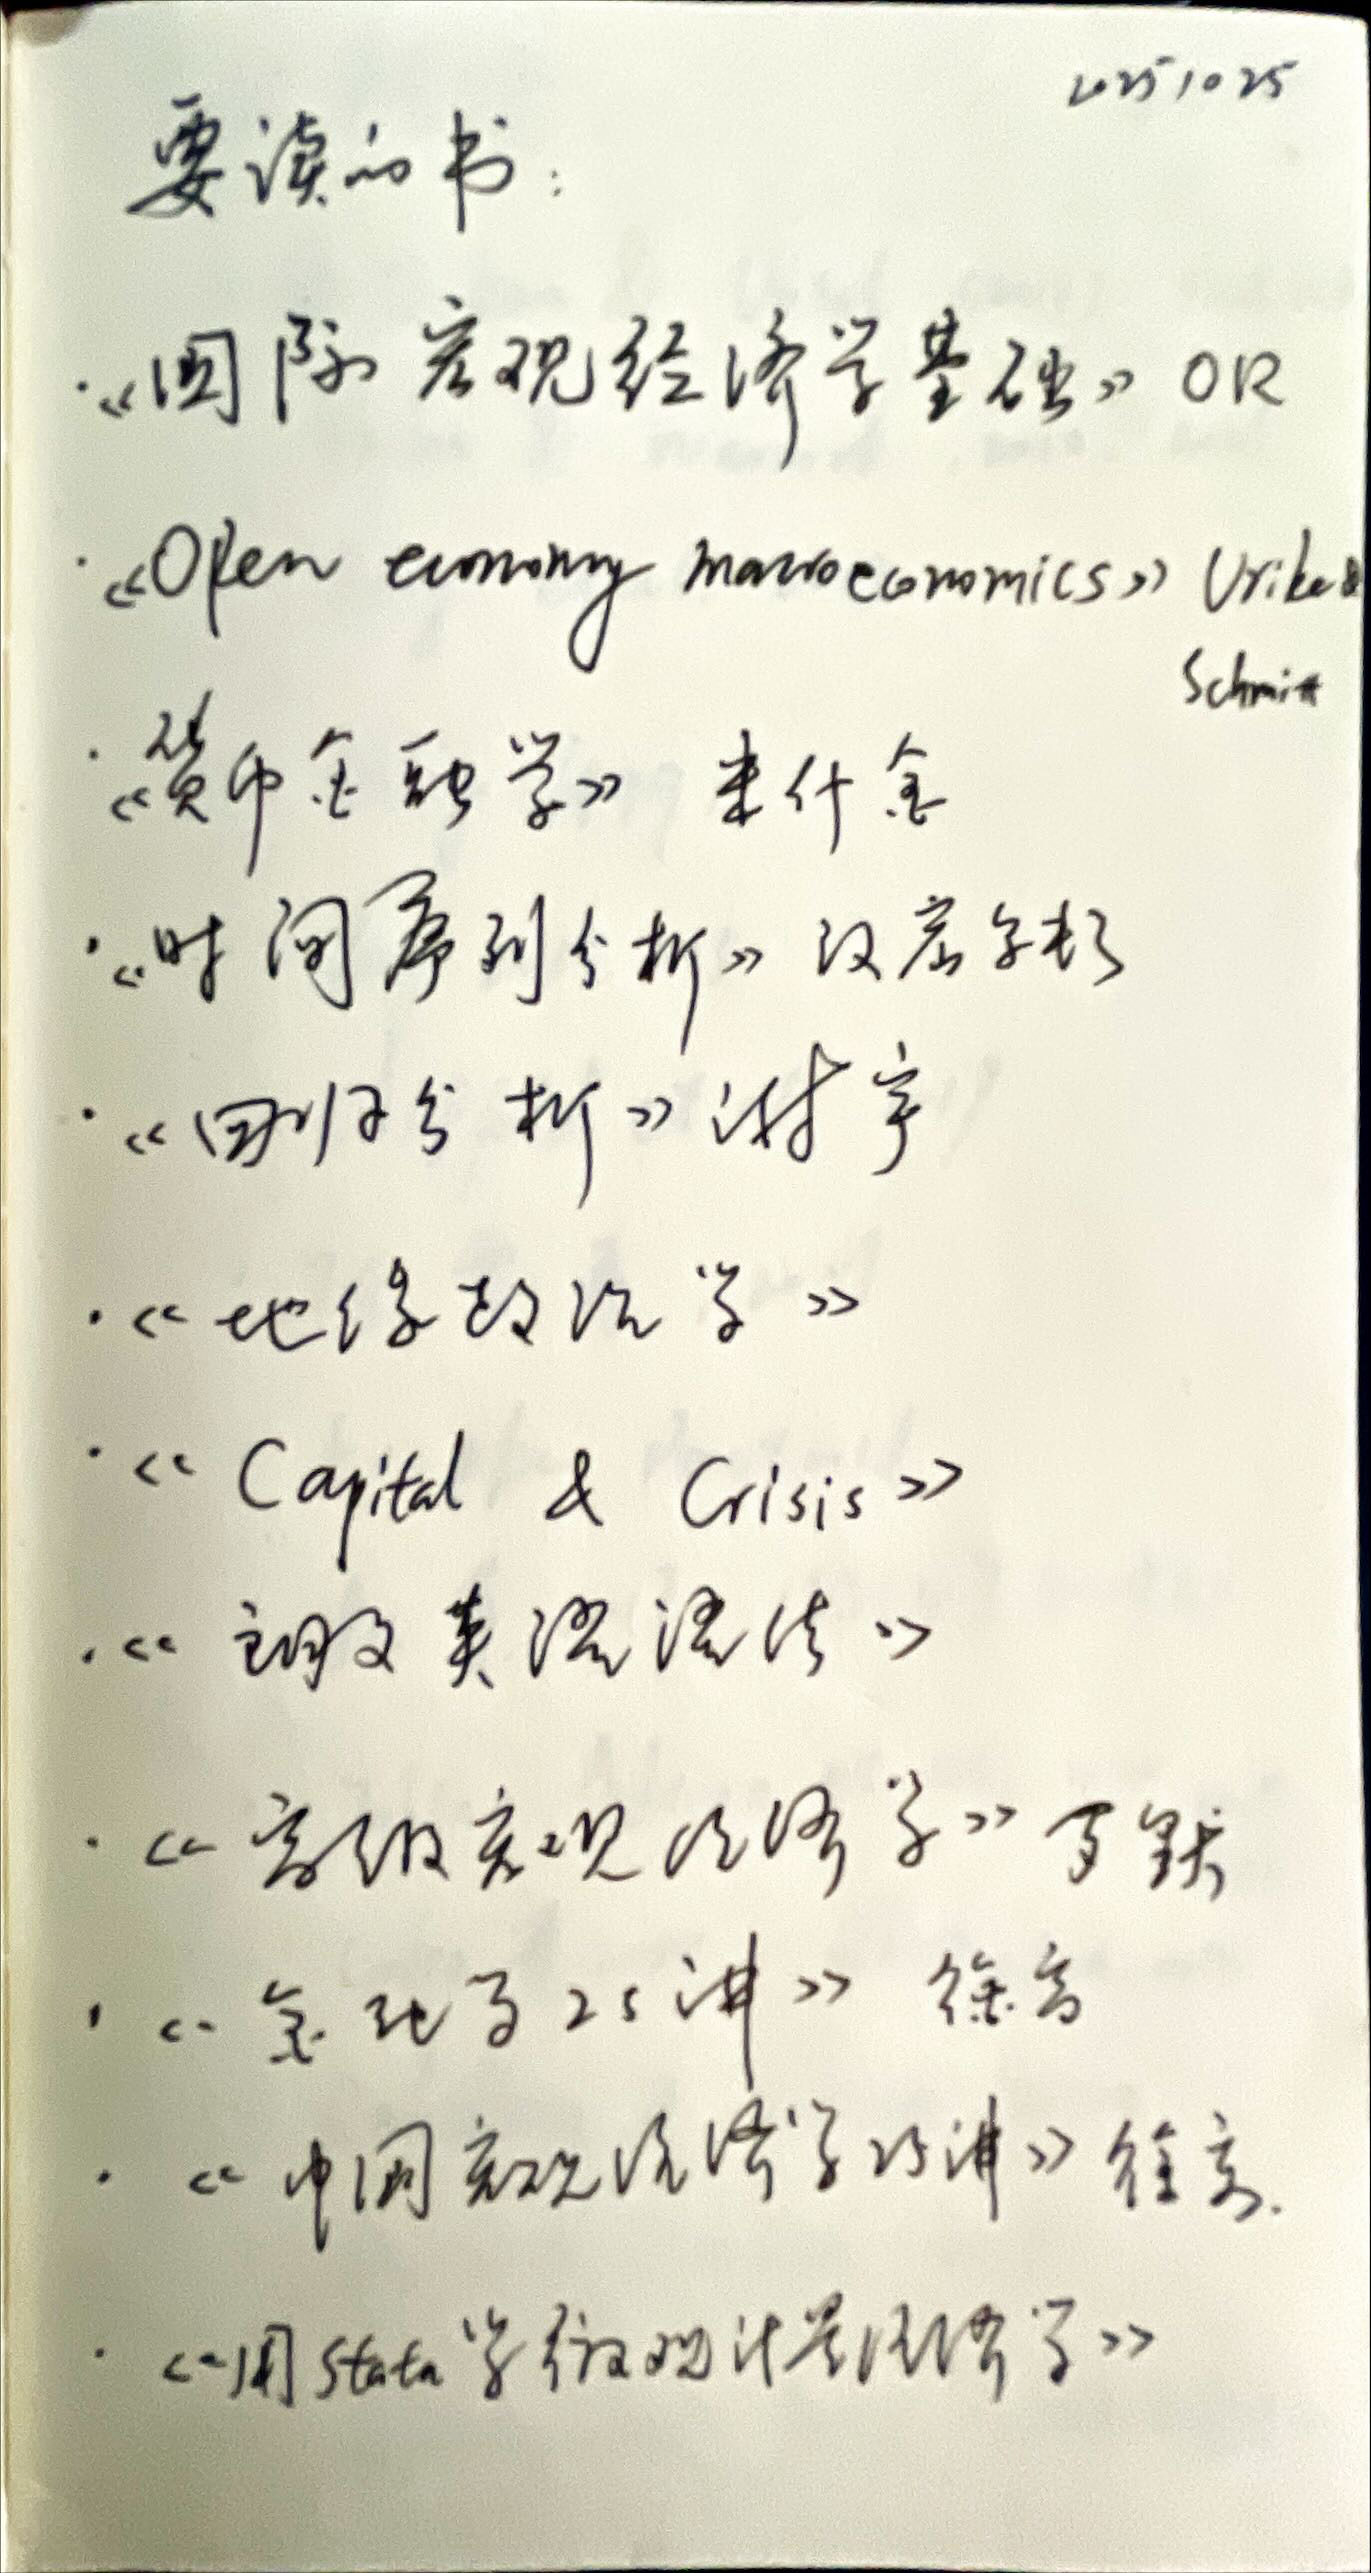 20251025
要读的书:
·《国际宏观经济学基础》OR
·《Open economy macroeconomics》Urike &
Schmitt
·《货币金融学》 米什金
·《时间序列分析》汉密尔顿
·《回归分析》谢宇
·《地缘政治学》
·《Capital & Crisis》
·《朗文英语语法》
·《高级宏观经济学》罗默
·《金融学25讲》 徐高
·《中国宏观经济学25讲》徐高.
·《用Stata学微观计量经济学》